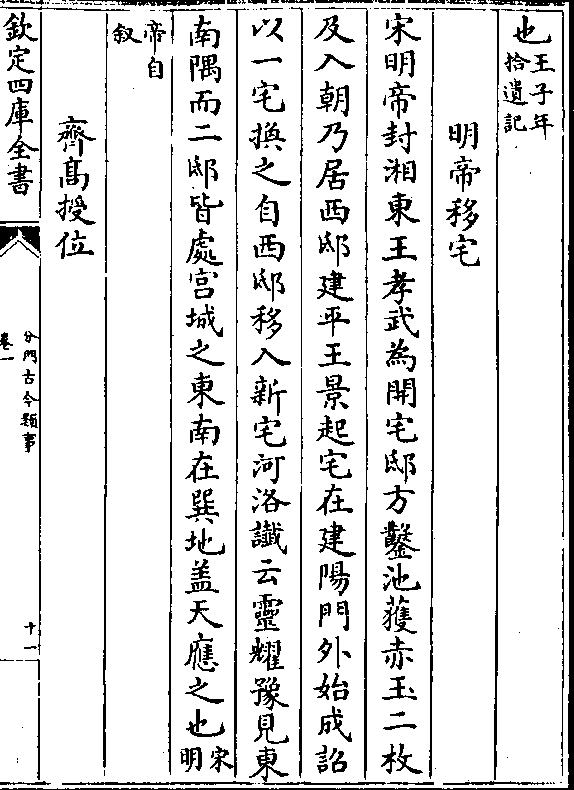 也王子年拾遺記
明帝移宅
宋明帝封湘東王孝武為開宅邸方鑿池獲赤玉二枚
及入朝乃居西邸建平王景起宅在建陽門外始成詔
以一宅換之自西邸移入新宅河洛讖云靈耀豫見東
南隅而二邸皆處宫城之東南在巽地盖天應之也宋明
帝自叙
齊髙授位
欽定四庫全書
分門古今類事
卷一
十一